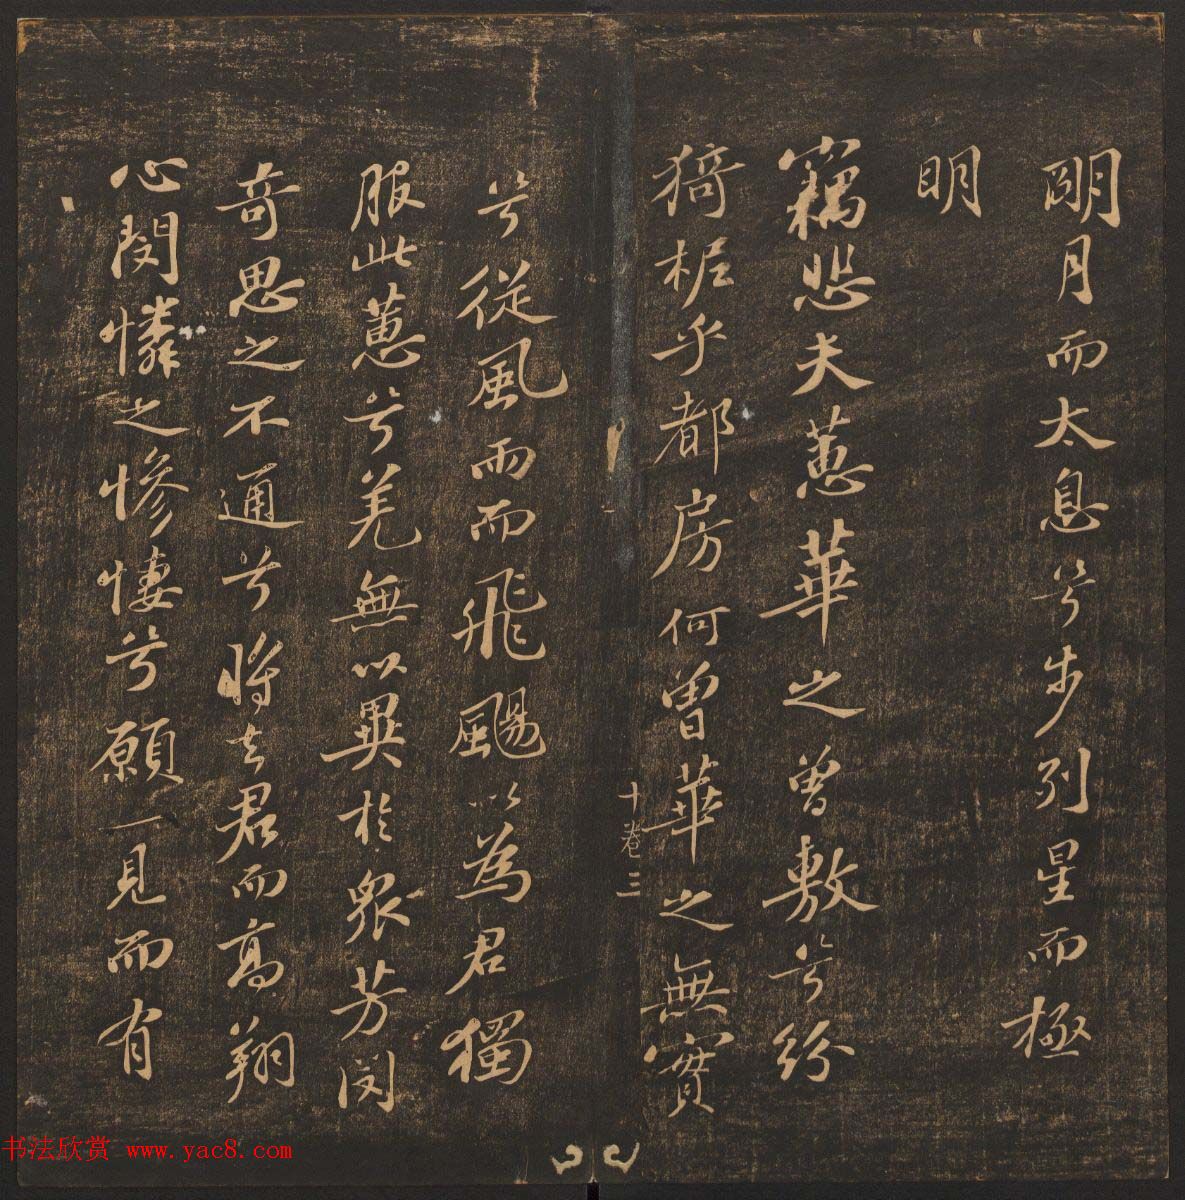 明月而太息兮步列星而極
明
竊悲夫蕙華之曾敷兮紛
猗柅乎都房何曾華之無實
兮從風雨而飛颺以為君獨
服此蕙兮羌無以異於眾芳閔
奇思之不通兮將去君而高翔
心閔憐之慘悽兮願一見而有
十卷 三
书法欣赏 www.yac8.com